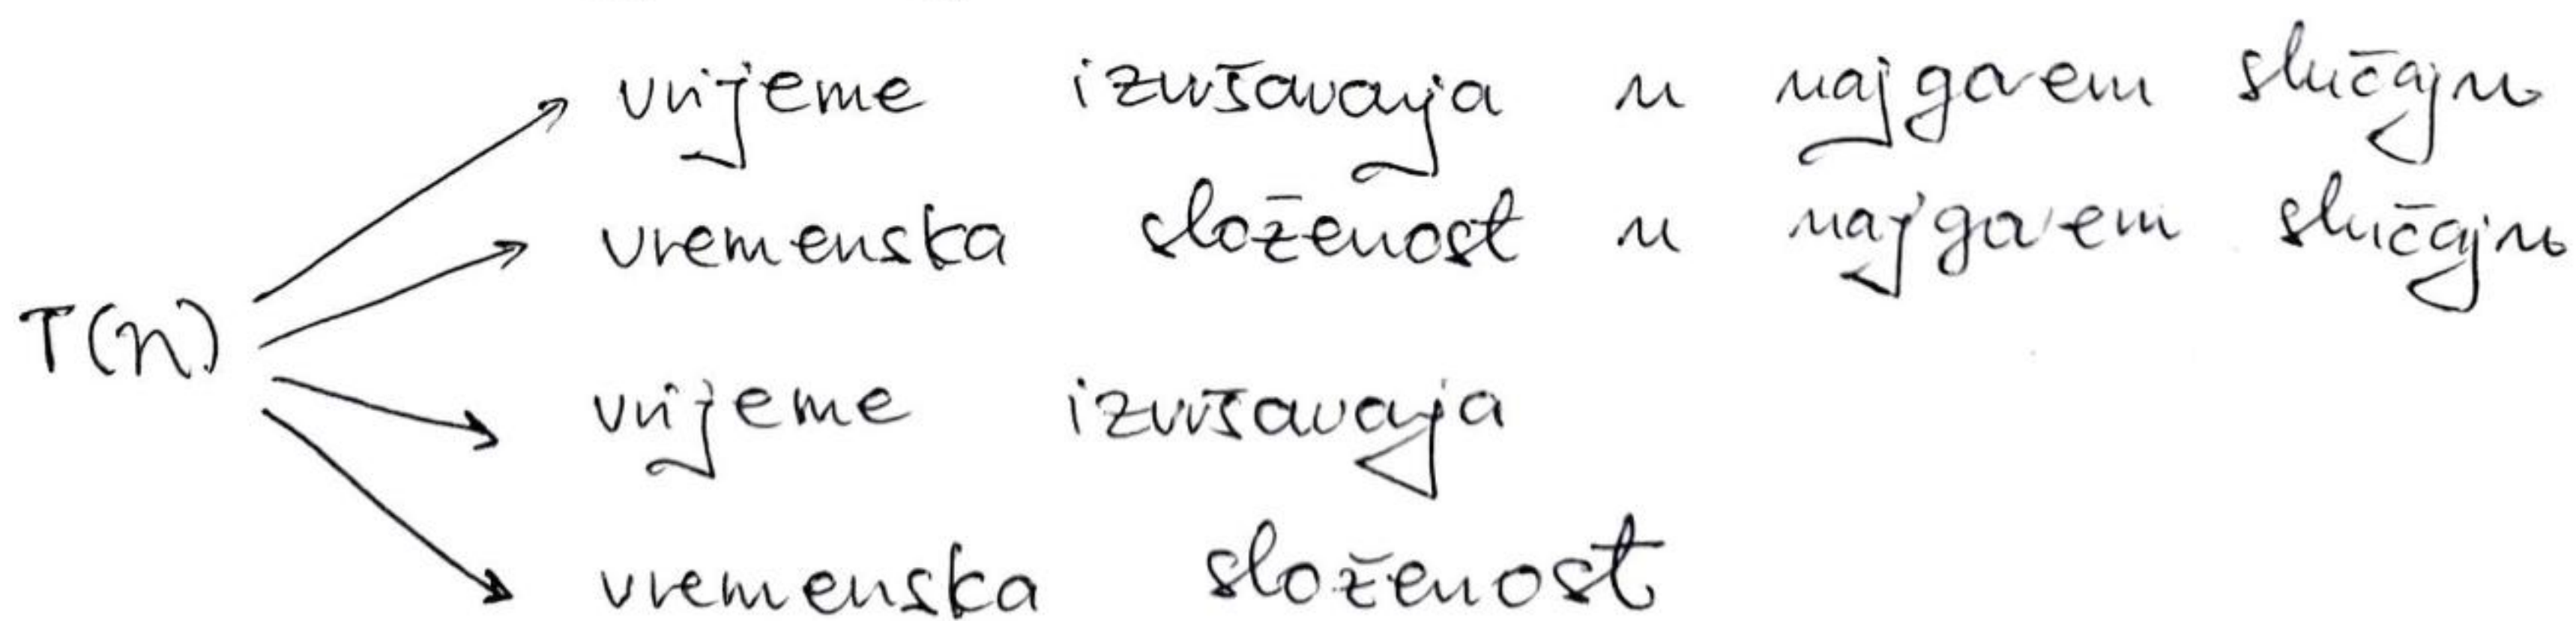 vrijeme izvršavanja u najgorem slučaju
vremenska složenost u najgorem slučaju
T(n)
vrijeme izvršavanja
vremenska složenost